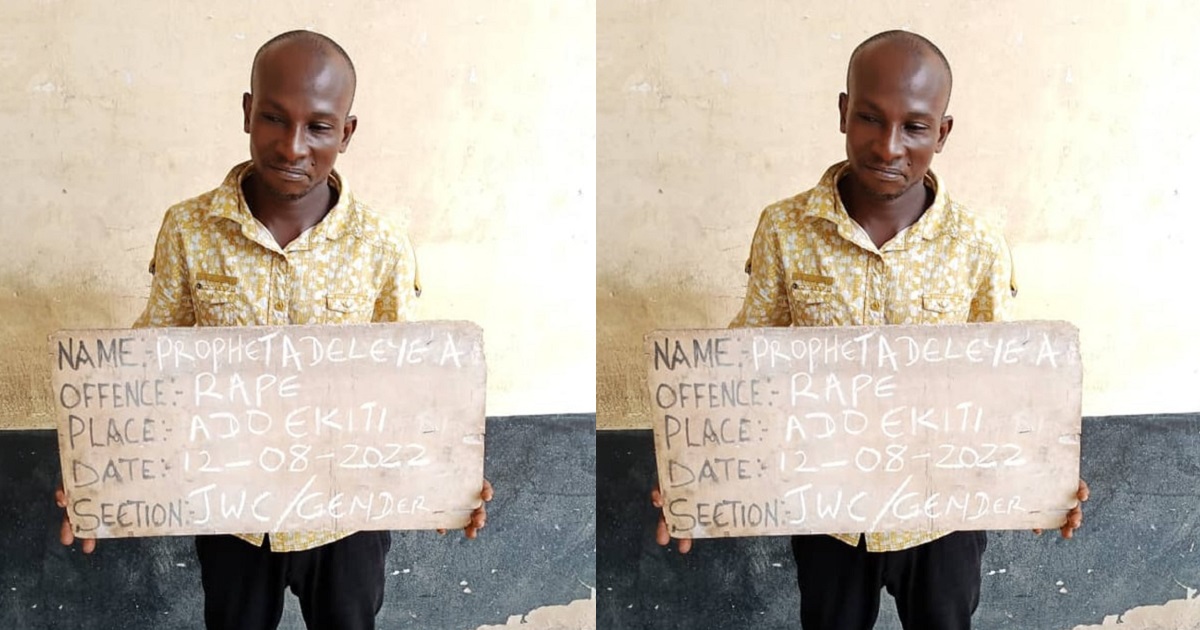 NAME:- PROPHET ADELEYE A
OFFENCE:- RAPE
PLACE:- ADO EKITI
DATE:- 12-08-2022
SECTION:- JWC/GENDER
NAME:- PROPHET ADELEYE A
OFFENCE:- RAPE
PLACE:- ADO EKITI
DATE:- 12-08-2022
SECTION:- JWC/GENDER